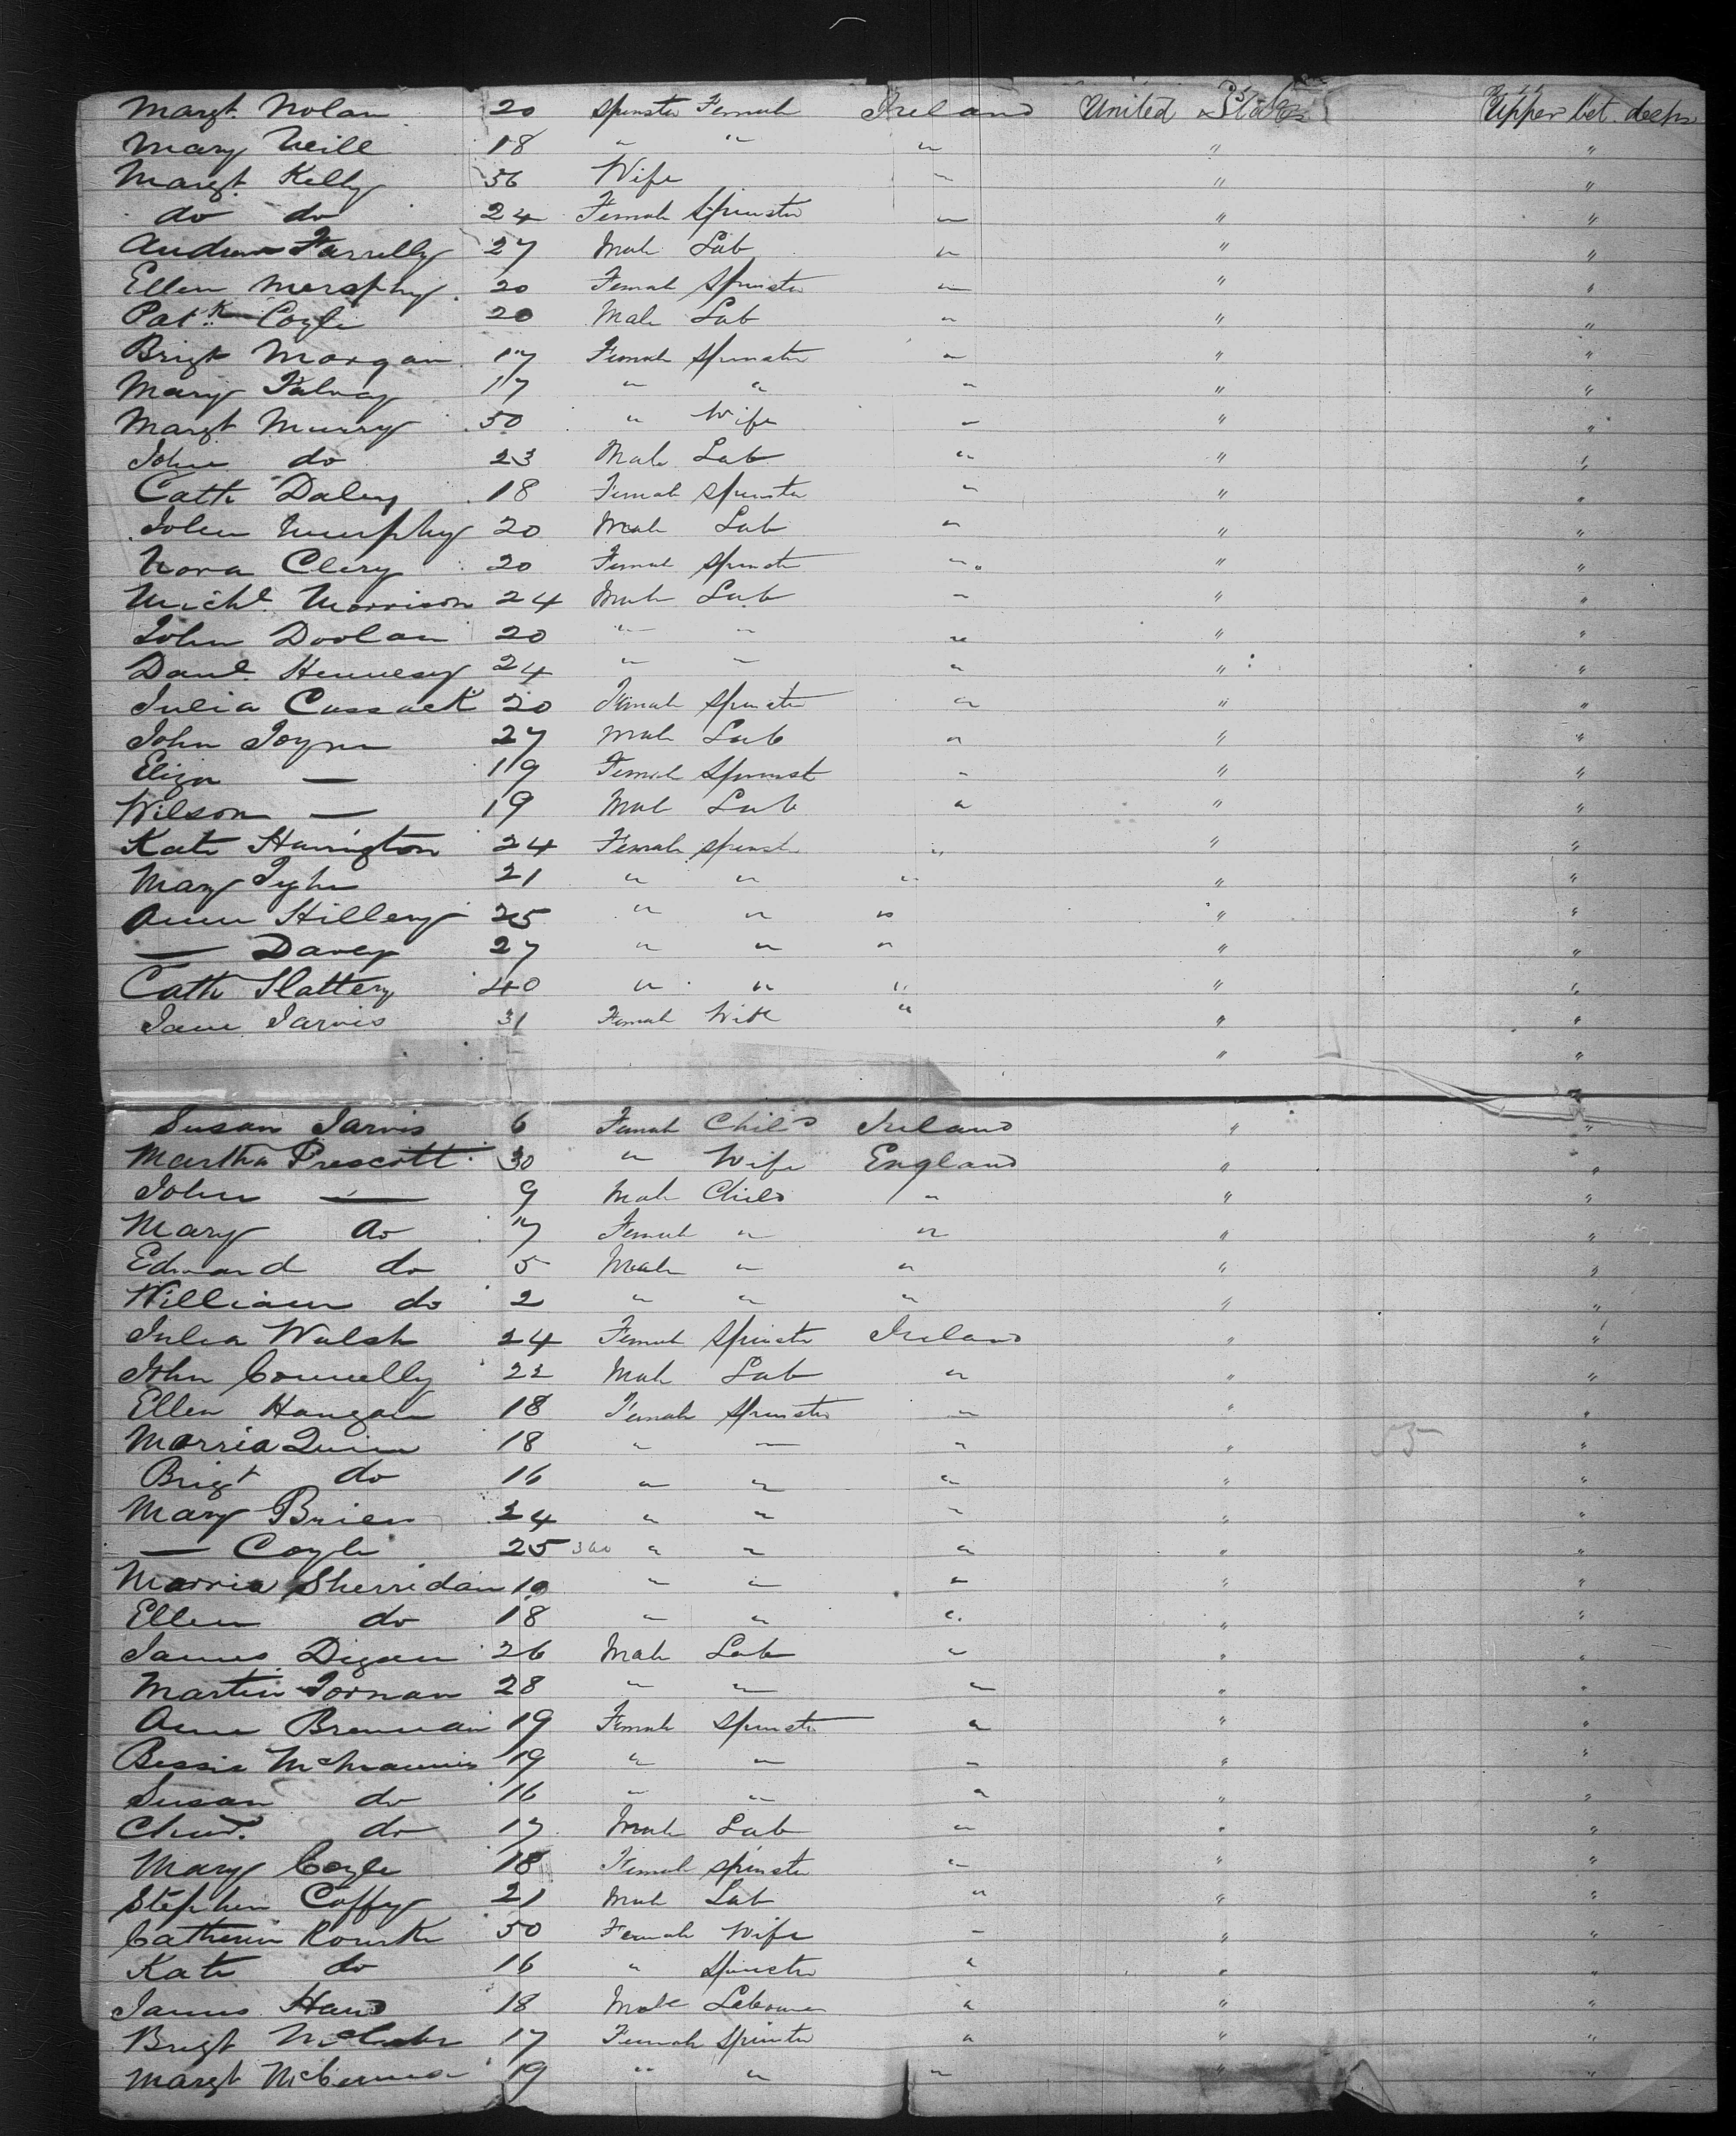 Margt. Nolan 20 Spinster Female Ireland United States Upper bet. decks
Mary Neill 18 " " " " "
Margt. Kelly 36 Wife " " "
do do 24 Female Spinster " " "
Andrew Farrelly 27 Male Lab " " "
Ellen Murphy 20 Female Spinster " " "
Patk Coyle 20 Male Lab " " "
Brigt Morgan 17 Female Spinster " " "
Mary 17 " " " " "
Margt Murry 50 " Wife " " "
John do 23 Male Lab " " "
Cath Daley 18 Female Spinster " " "
John Murphy 20 Male Lab " " "
Nora Clery 20 Female Spinster " " "
Michl. Morrison 24 Male Lab " " "
John Doolan 20 " " " " "
Danl Hennesy 24 " " " " "
Julia Cussack 20 Female Spinster " " "
John Joyner 27 Male Lab " " "
Eliza — 19 Female Spinst " " "
Wilson — 19 Male Lab " " "
Kate Harrington 24 Female Spinster " " "
Mary 21 " " " " "
Anne Hillery 25 " " " " "
— Davey 27 " " " " "
Cath Slattery 40 " " " " "
Jane Jarvis 31 Female Wife " " "
" "
Susan Jarvis 6 Female Child Ireland " "
Martha Prescott 30 " Wife England " "
John — 9 Male Child " " "
Mary do 7 Female " " " "
Edward do 5 Male " " " "
William do 2 " " " " "
Julia Walsh 24 Female Spinster Ireland " "
John Connelly 22 Male Lab " " "
Ellen Hangan 18 Female Spinster " " "
Marria Quinn 18 " " " " "
Brigt do 16 " " " " "
Mary Brien 24 " " " " "
— Coyle 25 " " " " "
Marria Sherridan 19 " " " " "
Ellen do 18 " " " " "
James Digan 26 Male Lab " " "
Martin 28 " " " " "
Anne Brennan 19 Female Spinster " " "
Bessie McManus 19 " " " " "
Susan do 16 " " " " "
do 17 Male Lab " " "
Mary Coyle 18 Female Spinster " " "
Stephen Coffey 21 Male Lab " " "
Catherin Rourke 50 Female Wife " " "
Kate do 16 " Spinster " " "
James Hand 18 Male Labourer " " "
Brigt McCabe 17 Female Spinster " " "
Margt 19 " " " " "